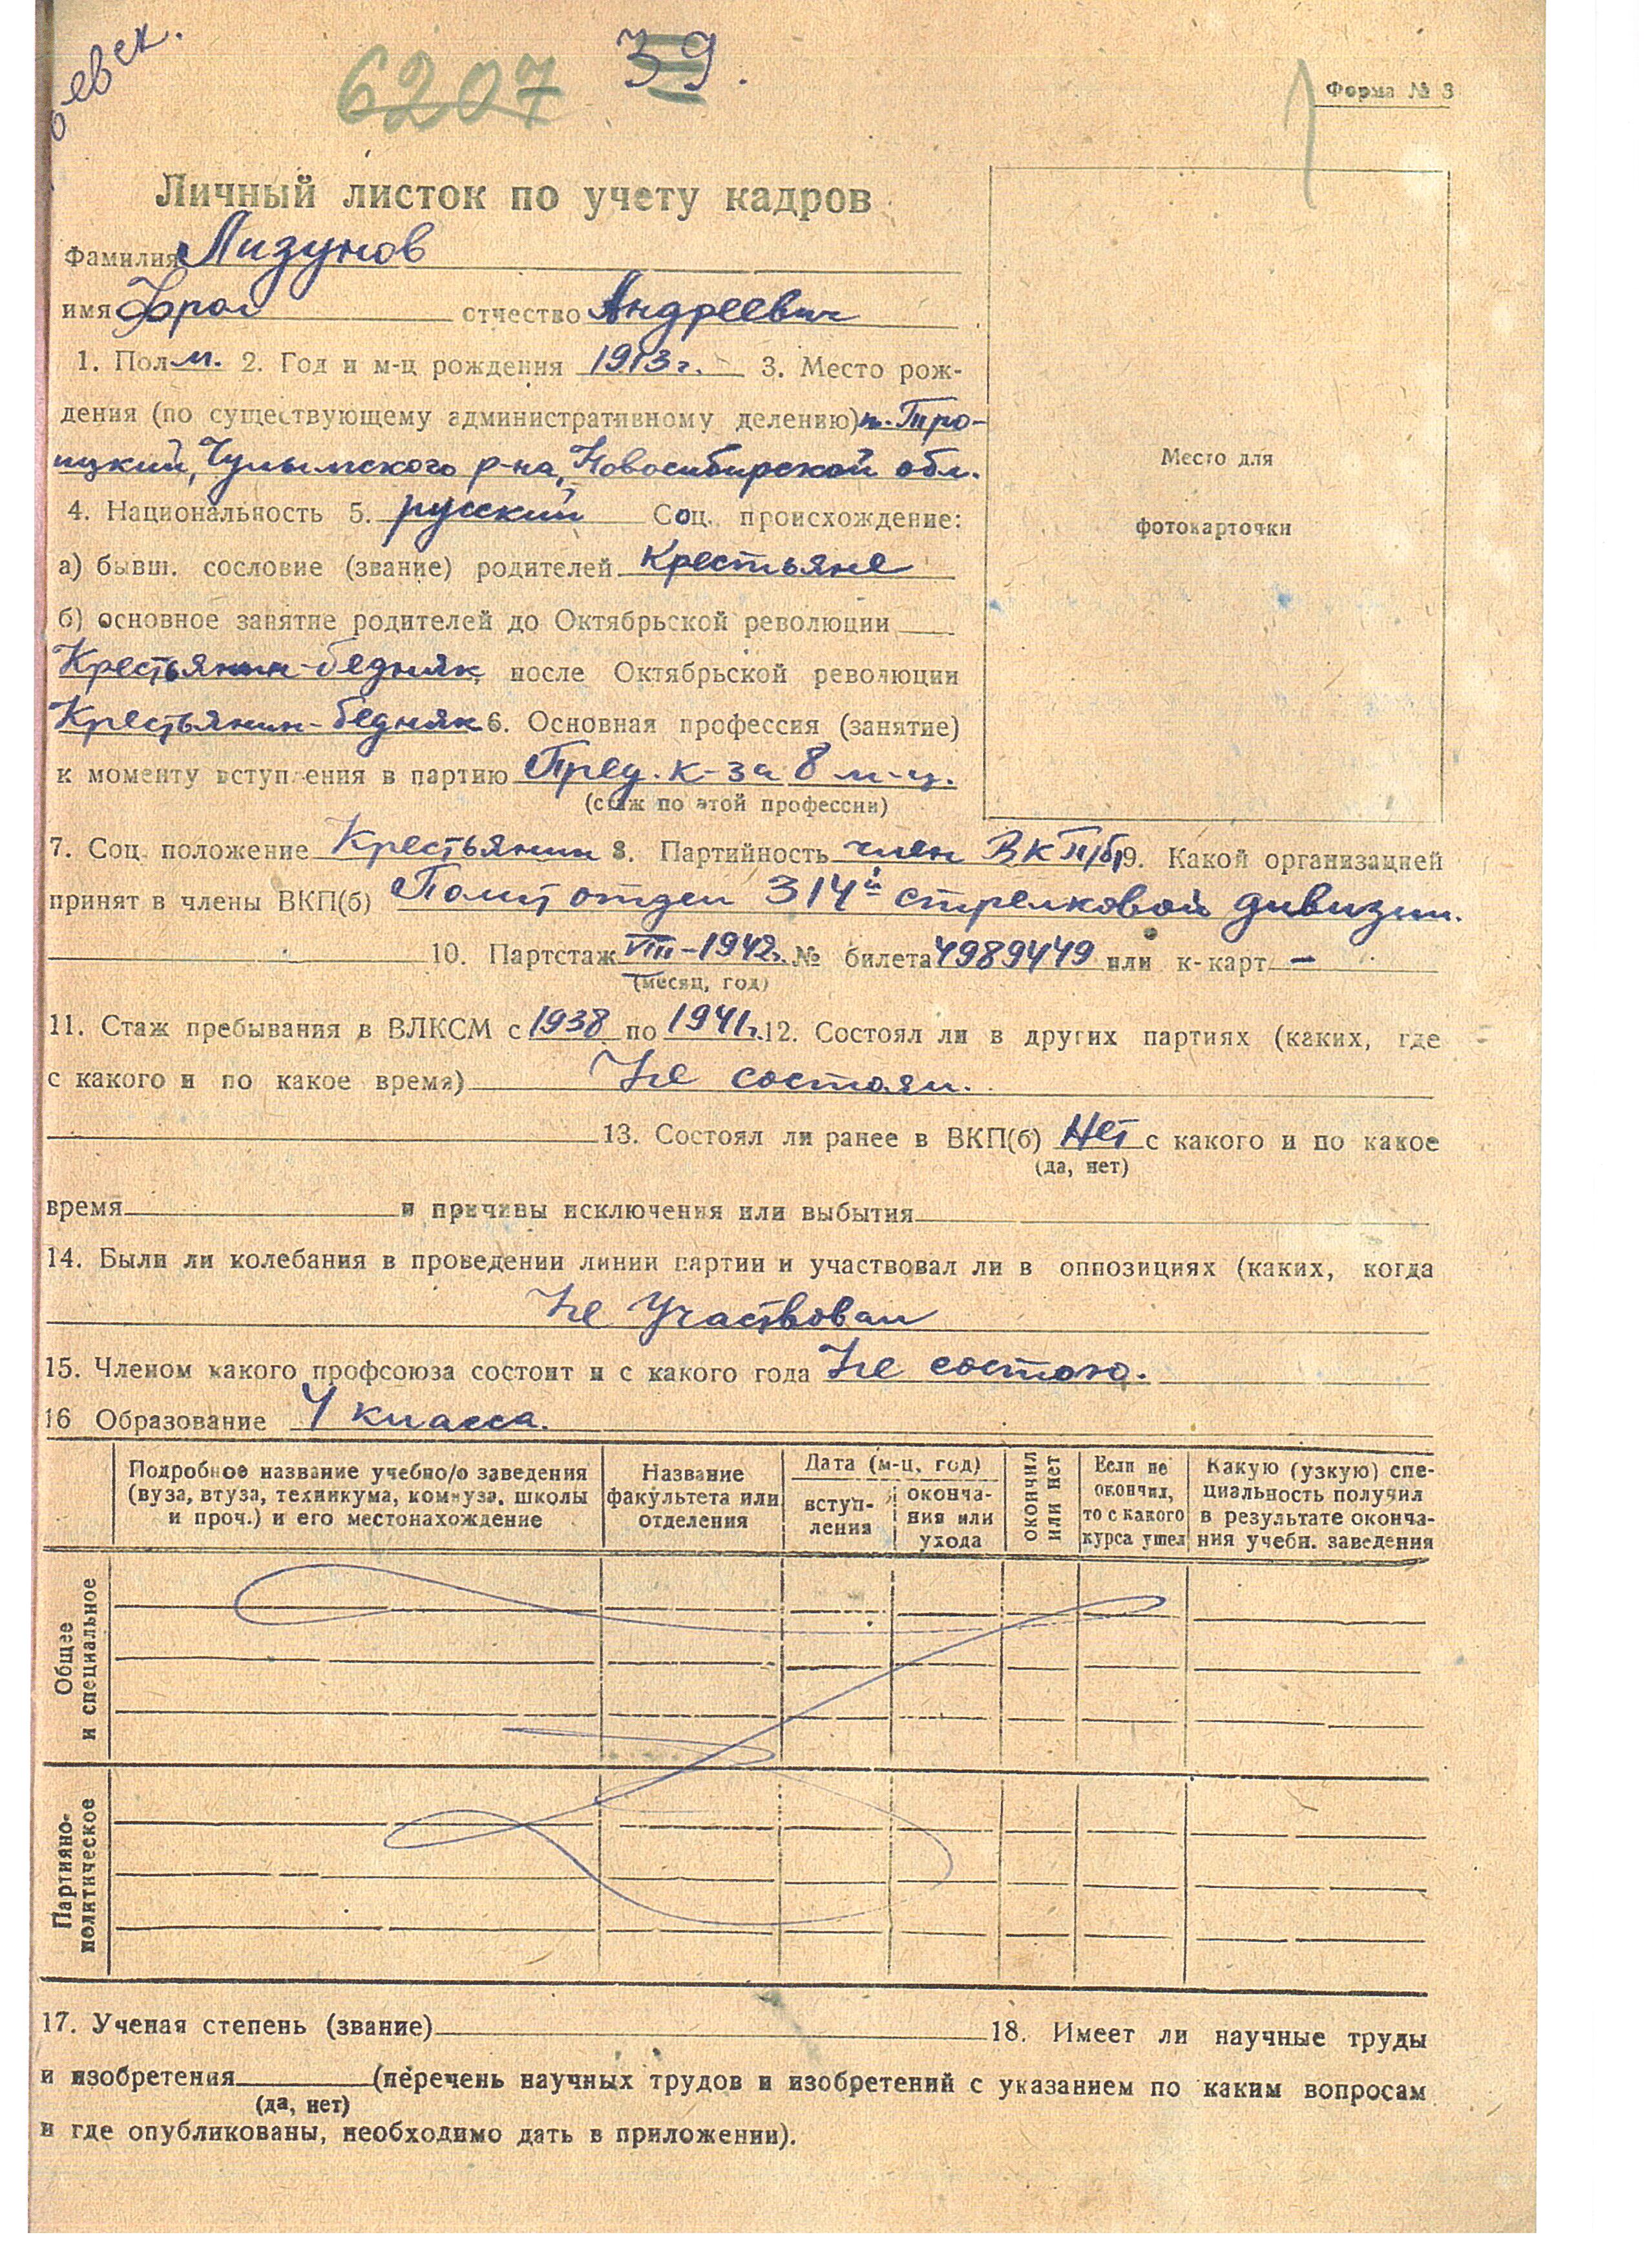 6207 39.
Форма № 3
Личный листок по учету кадров
Фамилия Лизунов
имя Фрол отчество Андреевич
1. Пол м. 2. Год и м-ц рождения 1913 г. 3. Место рож-
дения (по существующему административному делению) п. Тро-
ицкий, Чулымского р-на, Новосибирской обл.
4. Национальность 5. русский Соц. происхождение:
а) бывш. сословие (звание) родителей Крестьяне
б) основное занятие родителей до Октябрьской революции
Крестьянин-бедняк, после Октябрьской революции
Крестьянин-бедняк 6. Основная профессия (занятие)
к моменту вступления в партию Пред. к-за 8 м-ц.
(стаж по этой профессии)
Место для
фотокарточки
7. Соц. положение Крестьянин 8. Партийность член ВКП(б) 9. Какой организацией
принят в члены ВКП(б) Полит отдел 314й стрелковой дивизии.
10. Партстаж VIII-1942г. № билета 4989449 или к-карт –
(месяц, год)
11. Стаж пребывания в ВЛКСМ с 1938 по 1941г. 12. Состоял ли в других партиях (каких, где
с какого и по какое время) Не состоял.
13. Состоял ли ранее в ВКП(б) Нет с какого и по какое
(да, нет)
время и причины исключения или выбытия
14. Были ли колебания в проведении линии партии и участвовал ли в оппозициях (каких, когда
Не Участвовал
15. Членом какого профсоюза состоит и с какого года Не состою.
16 Образование 4 класса.
Подробное название учебно/о заведения (вуза, втуза, техникума, комвуза, школы и проч.) и его местонахождение
Название факультета или отделения
Дата (м-ц, год)
вступ-
ления
оконча-
ния или
ухода
окончил
или нет
Если не
окончил,
то с какого
курса ушел
Какую (узкую) спе-
циальность получил
в результате оконча-
ния учебн. заведения
Общее
и специальное
Партийно-
политическое
17. Ученая степень (звание) 18. Имеет ли научные труды
и изобретения (перечень научных трудов и изобретений с указанием по каким вопросам
(да, нет)
и где опубликованы, необходимо дать в приложении).